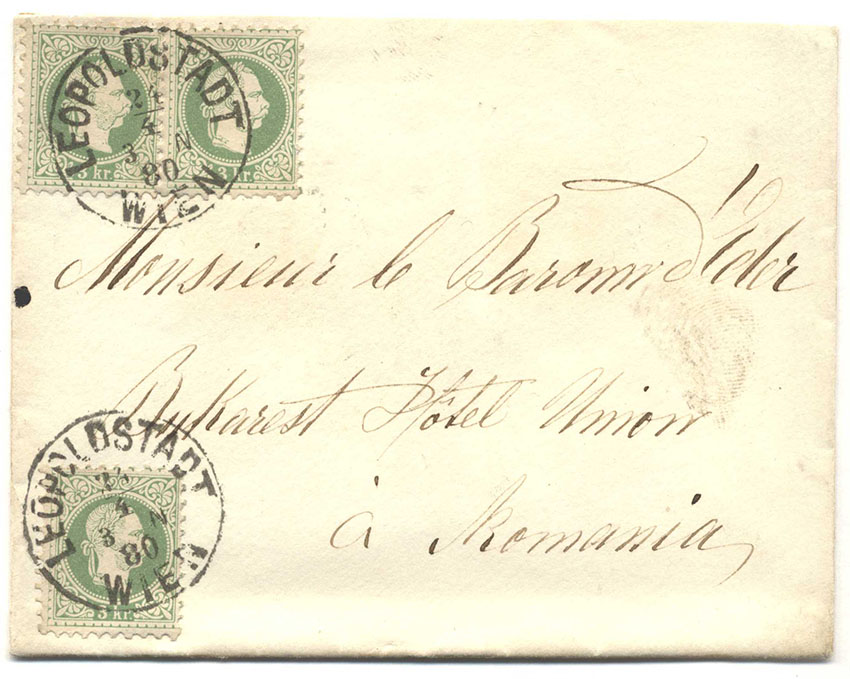 LEOPOLDSTADT
24
4
3 N
80
WIEN
3 kr. 3 kr.
Monsieur le Baron d'Eder
Bukarest Hôtel Union
à Romania
LEOPOLDSTADT
24
4
3 N
80
WIEN
3 kr.